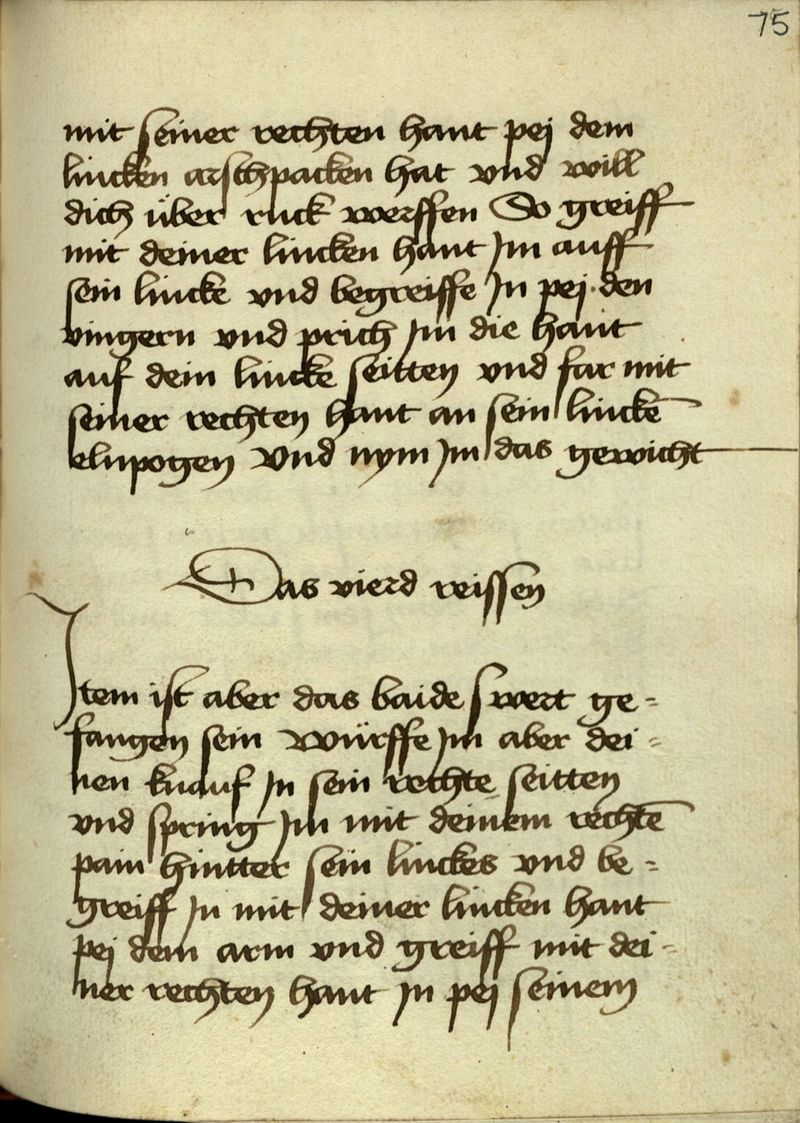 75
mit seiner rechten hant pej dem
lincken arschpacken hat vnd will
dich über ruck werffen So greiff
mit deiner lincken hant Jm auff
sein lincke vnd begreiffe Jn pej den
vingern vnd prich Jm die hant
auf dein lincke seitten vnd far mit
seiner rechten hant an sein linckē
elnpogen vnd nym Jm das gewicht
Das vierd reissen
Jtem ist aber das baide swert ge-
fangen sein würffe Jm aber dei-
nen knauf Jn sein rechte seitten
vnd spring Jm mit deinem rechtē
pain hintter sein linckes vnd be-
greiff Jn mit deiner lincken hant
pej dem arm vnd greiff mit dei-
ner rechten hant Jn pej seinem